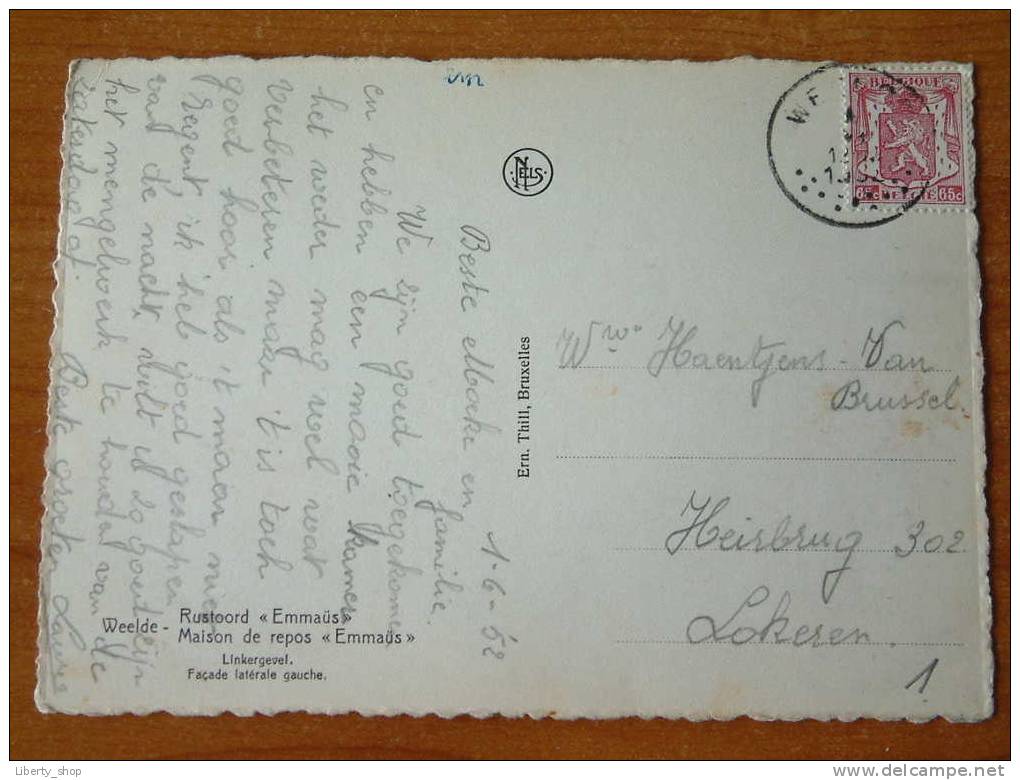 1-6-52
Beste Moeke en
familie.
We zijn goed toegekomen
en hebben een mooie kamer
het weder mag wel wat
verbeteren maar 't is toch
goed hoor als 't maar niet
regent ik heb goed geslapen
van de nacht, wilt U zo goed zijn
het mengelwerk te houden van de
Beste groeten Laura
Weelde - Rustoord «Emmaüs»
Maison de repos «Emmaüs»
Linkergevel.
Façade latérale gauche.
NELS
Ern. Thill, Bruxelles
BELGIQUE
65c BELGIE 65c
WE
Wwe Haentjens - Van
Brussel.
Heirbrug 302
Lokeren
1
Liberty_shop
delcampe.net